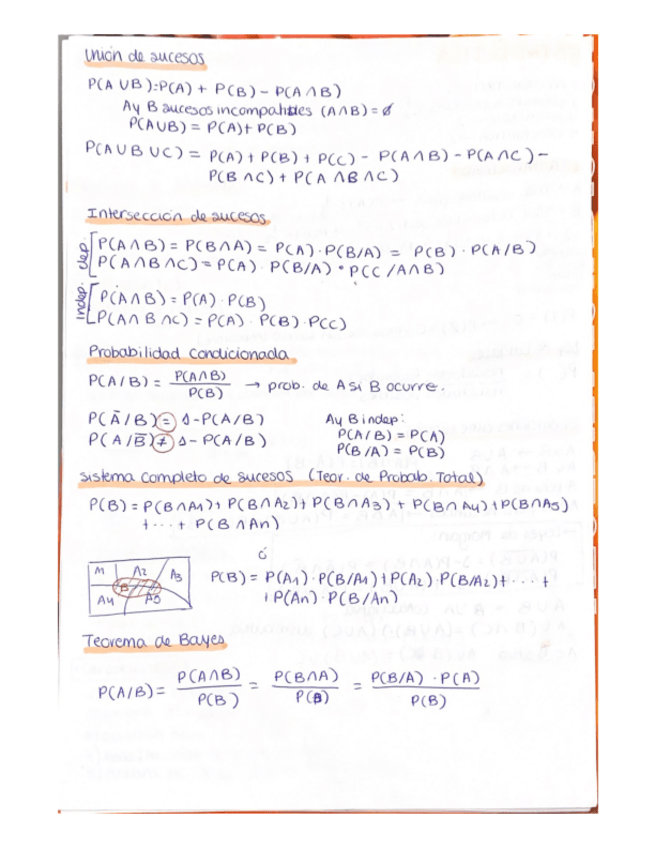 Unión de sucesos
P(A∪B)=P(A) + P(B) - P(A∩B)
A y B sucesos incompatibles (A∩B)=∅
P(A∪B) = P(A)+P(B)
P(A∪B∪C) = P(A)+P(B)+P(C) - P(A∩B) - P(A∩C) -
P(B∩C) + P(A∩B∩C)
Intersección de sucesos
dep.
P(A∩B) = P(B∩A) = P(A)·P(B/A) = P(B)·P(A/B)
P(A∩B∩C) = P(A)·P(B/A)·P(C/A∩B)
indep.
P(A∩B) = P(A)·P(B)
P(A∩B∩C) = P(A)·P(B)·P(C)
Probabilidad condicionada
P(A/B) = P(A∩B)/P(B) → prob. de A si B ocurre.
P(Ā/B) = 1-P(A/B)
P(A/B̄) ≠ 1-P(A/B)
A y B indep:
P(A/B) = P(A)
P(B/A) = P(B)
Sistema completo de sucesos (Teor. de Probab. Total)
P(B) = P(B∩A1)+P(B∩A2)+P(B∩A3)+P(B∩A4)+P(B∩A5)
+···+ P(B∩An)
ó
A2 A3
B
A4 A5
P(B) = P(A1)·P(B/A1)+P(A2)·P(B/A2)+···+
+P(An)·P(B/An)
Teorema de Bayes
P(A/B) = P(A∩B)/P(B) = P(B∩A)/P(B) = P(B/A)·P(A)/P(B)